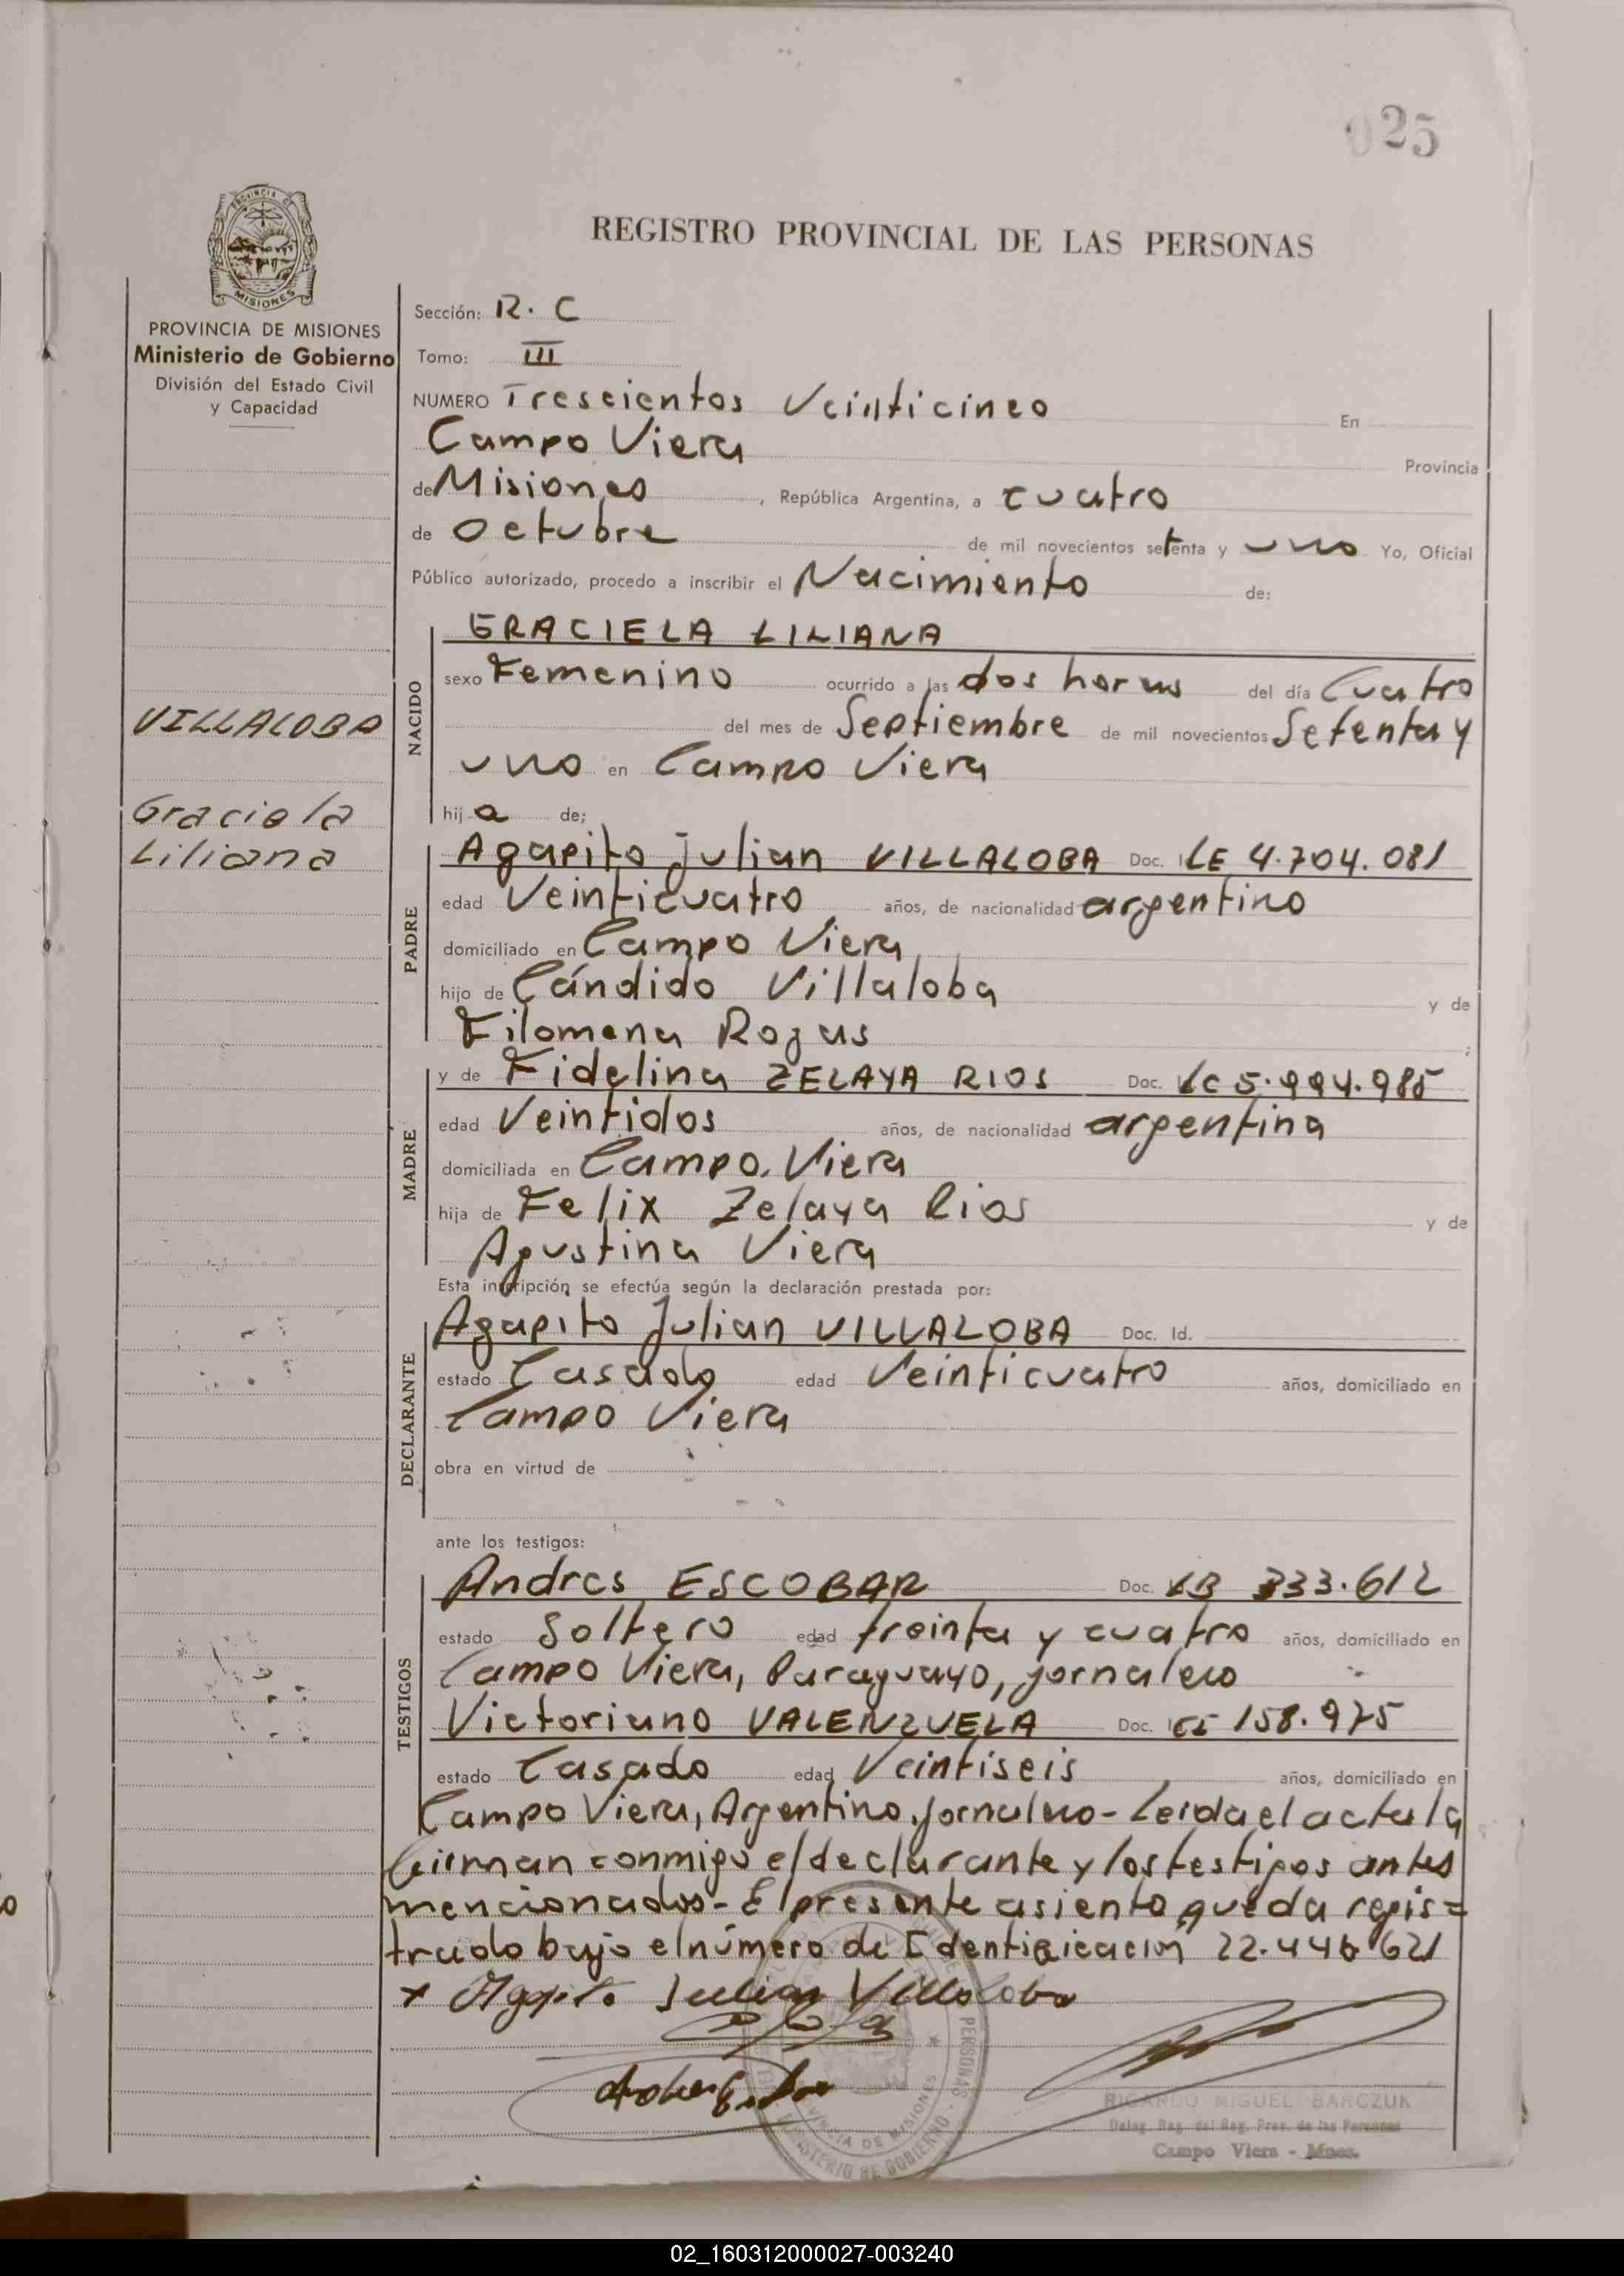 025
PROVINCIA DE
MISIONES
REGISTRO PROVINCIAL DE LAS PERSONAS
PROVINCIA DE MISIONES
Ministerio de Gobierno
División del Estado Civil
y Capacidad
VILLALOBA
Graciela
Liliana
Sección: R. C
Tomo: III
NUMERO Trescientos Veinticinco En
Campo Viera Provincia
de Misiones, República Argentina, a cuatro
de Octubre de mil novecientos setenta y uno Yo, Oficial
Público autorizado, procedo a inscribir el Nacimiento de:
NACIDO
GRACIELA LILIANA
sexo Femenino ocurrido a las dos horas del día Cuatro
del mes de Septiembre de mil novecientos Setenta y
uno en Campo Viera
hija de;
PADRE
Agapito Julian VILLALOBA Doc. LE 4.704.081
edad Veinticuatro años, de nacionalidad argentino
domiciliado en Campo Viera
hijo de Cándido Villaloba y de
Filomena Rojas ;
MADRE
y de Fidelina ZELAYA RIOS Doc. LC 5.994.985
edad Veintidos años, de nacionalidad argentina
domiciliada en Campo Viera
hija de Felix Zelaya Rios y de
Agustina Viera
Esta inscripción se efectúa según la declaración prestada por:
DECLARANTE
Agapito Julian VILLALOBA Doc. Id.
estado Casado edad Veinticuatro años, domiciliado en
Campo Viera
obra en virtud de
ante los testigos:
TESTIGOS
Andres ESCOBAR Doc. 333.612
estado Soltero edad treinta y cuatro años, domiciliado en
Campo Viera, Paraguayo, jornalero
Victoriano VALENZUELA Doc. 158.975
estado Casado edad Veintiseis años, domiciliado en
Campo Viera, Argentino, jornalero - Leida el acta la
firman conmigo el declarante y los testigos antes
mencionados - El presente asiento queda regis=
trado bajo el número de Identificación 22.446.621
x Agapito Julian Villaloba
RICARDO MIGUEL BARCZUK
Deleg. Reg. del Reg. Prov. de las Personas
Campo Viera - Mnes.
02_160312000027-003240